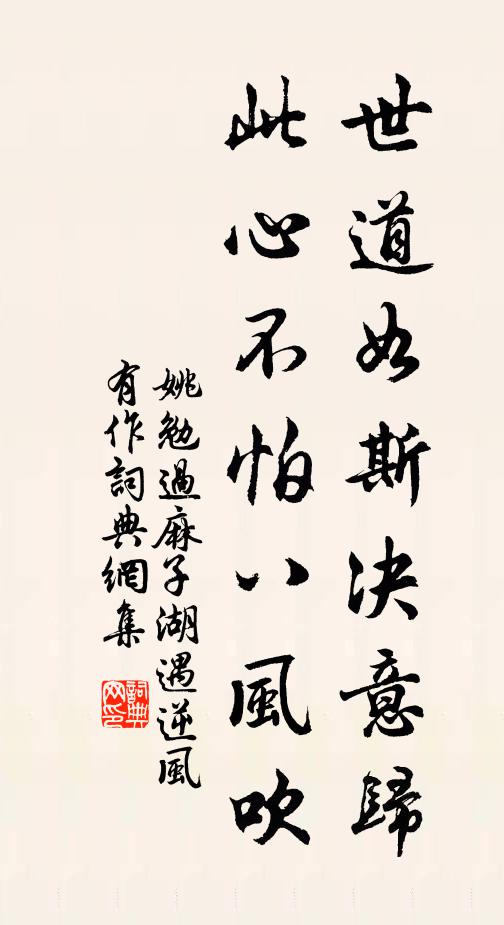 世道如斯決意歸
此心不怕八風吹
姚勉過麻子湖遇逆風
有作詞典網集
詞典
网印